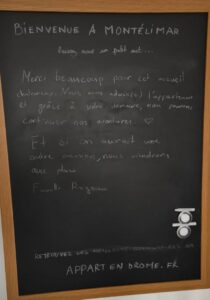 BIENVENUE À MONTÉLIMAR
laissez nous un petit mot...
Merci beaucoup pour cet accueil
chaleureux. Vous avez l'appartement
et grâce à votre demeure, nous pourrons
continuer nos aventures ♡
Et si on aurait une
autre occasion, nous viendrons
avec plaisir
Famille
RETROUVEZ
APPART EN DROME.FR